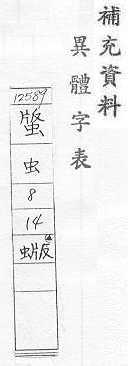 補充資料
異體字表
12589
虫
8
14